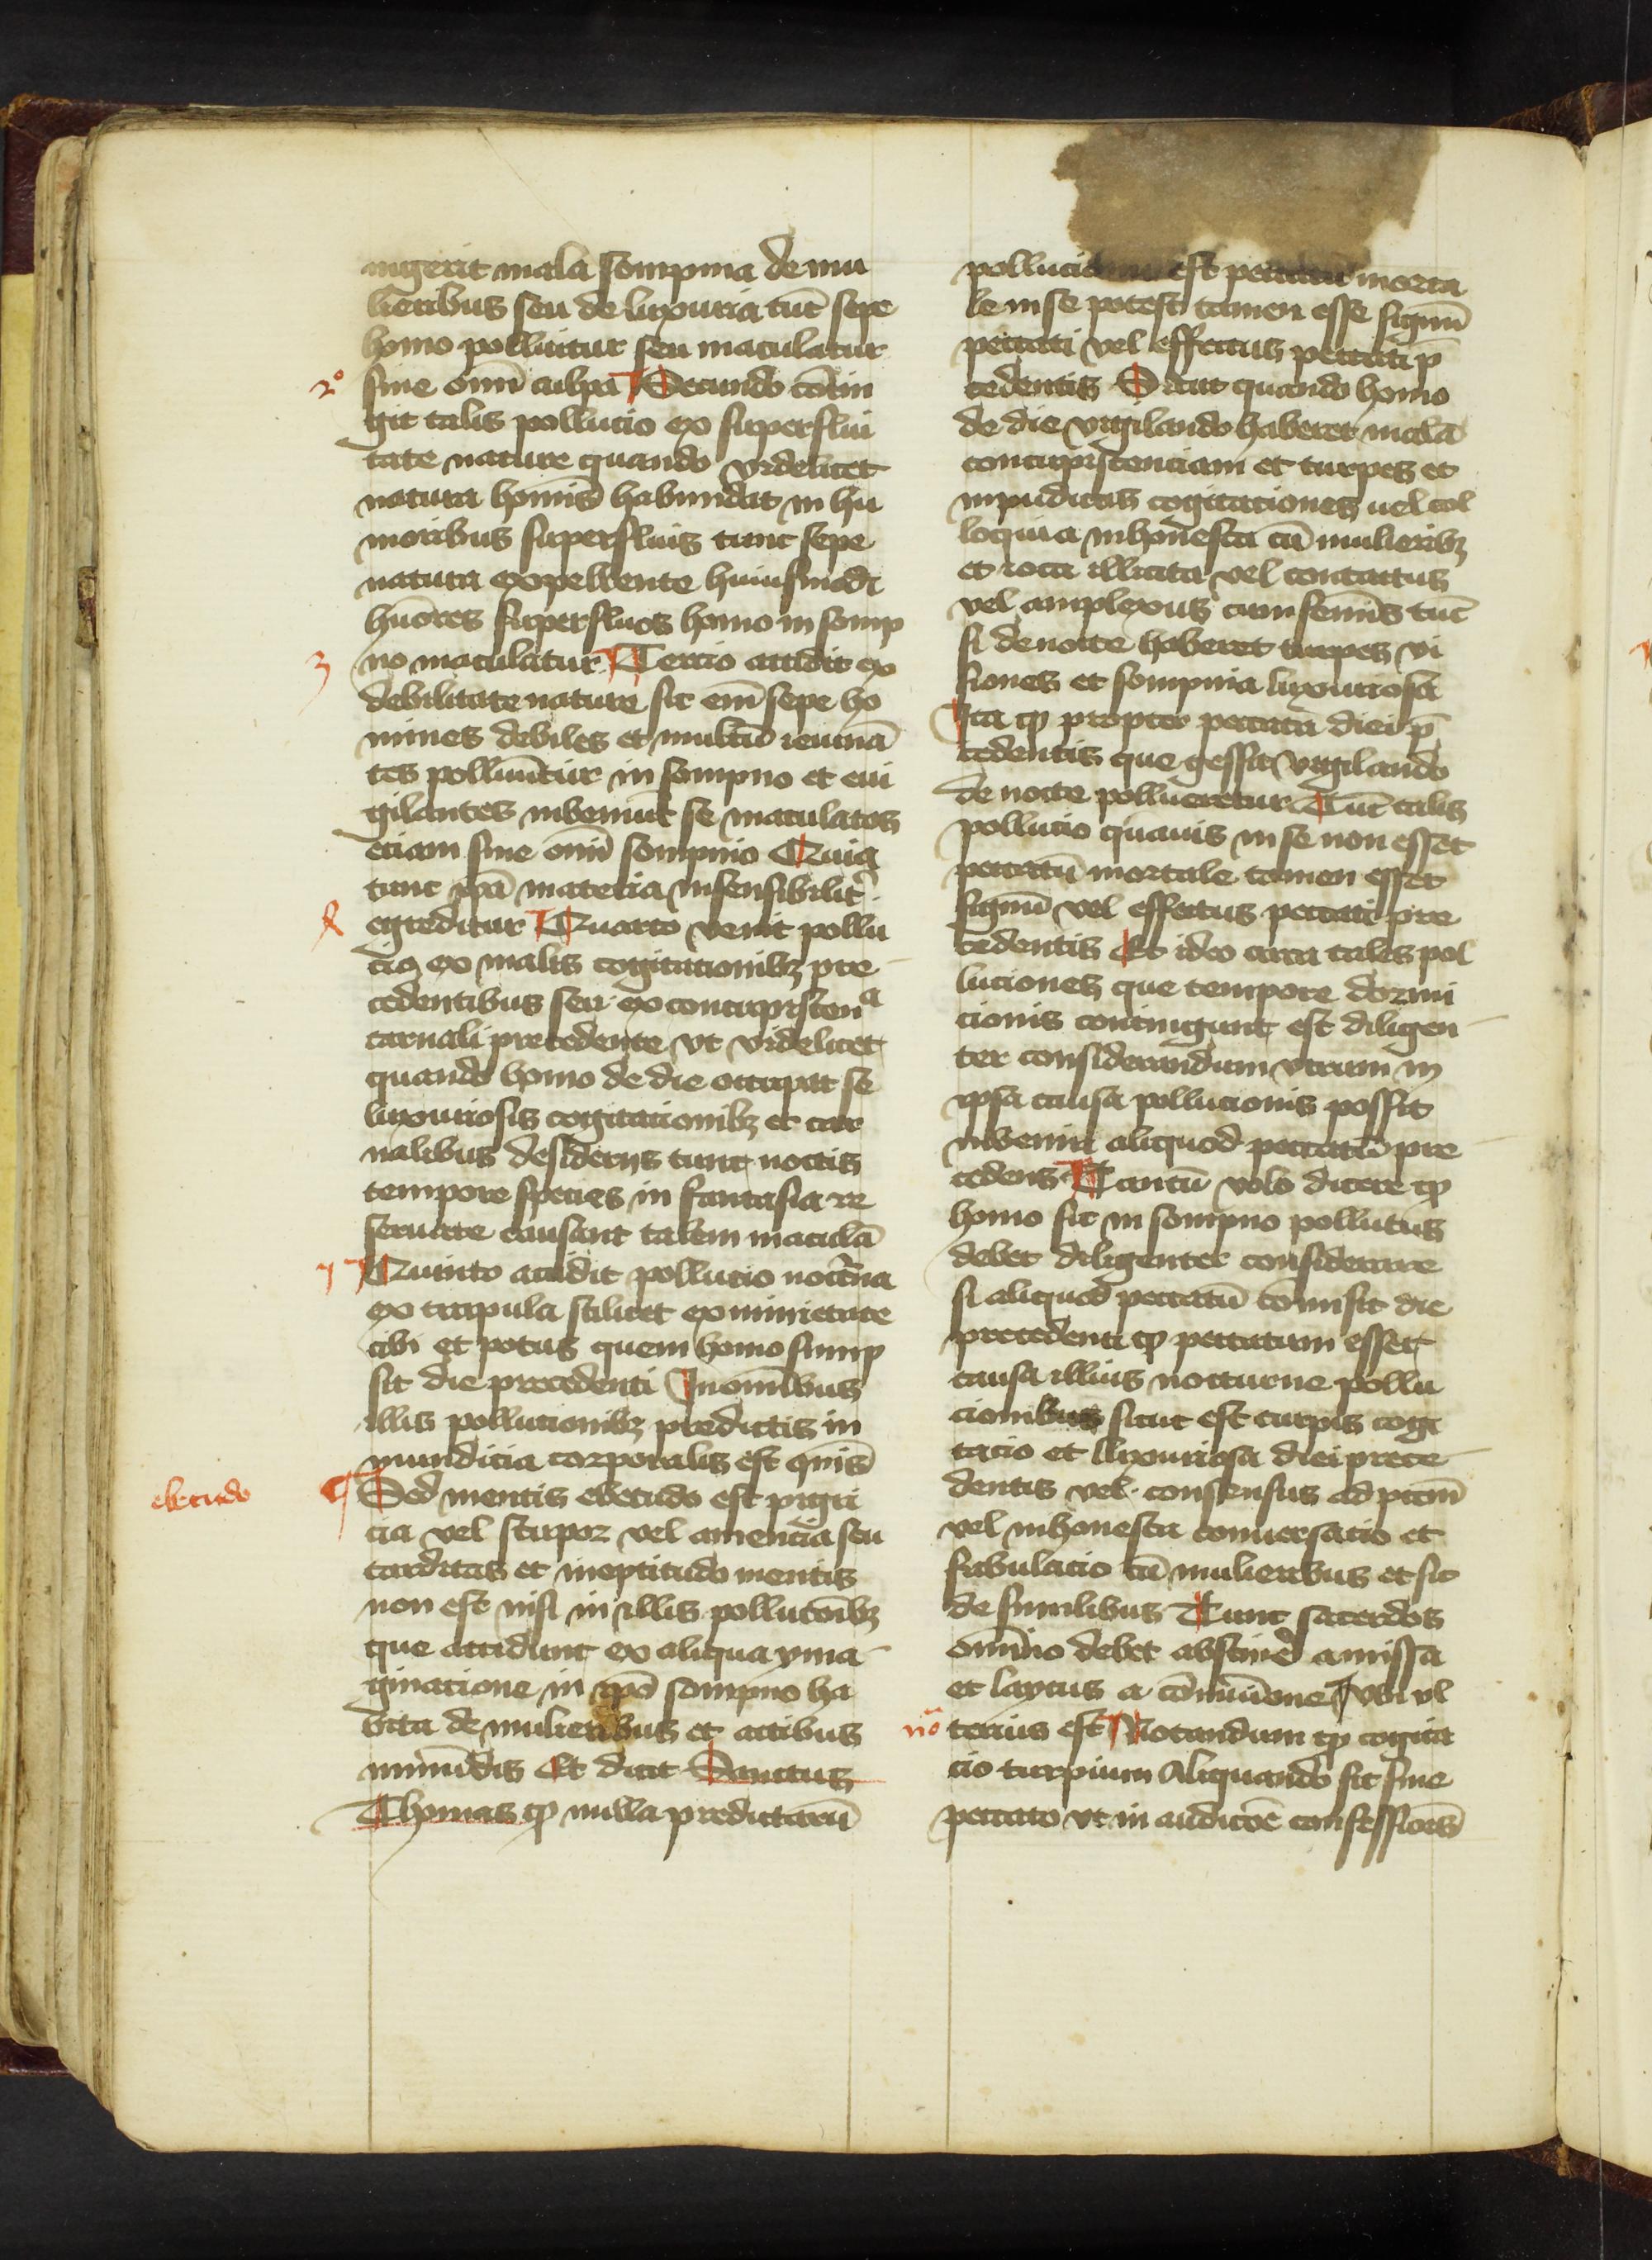 ingerit mala sompnia de mu
lieribus seu de luxuria tūc sepe
homo polluitur seu maculatur
2º sine omī culpa Secundo cōtin
git talis pollucio ex superflui
tate nature quando videlicet
natura homīs habundat in hu
moribus superfluis tunc sepe
natura expellente huiusmodi
hūores superfluos homo in somp
3 no maculatur Tercio accidit ex
debilitate nature sic em̄ sepe ho
mines debiles et multū ieiunā
tes polluūtur in sompno et eui
gilantes inveniūt se maculatos
eciam sine omī sompnio Quia
tunc ipā materia insensibilit̾
4 egreditur Quarto venit pollu
cio ex malis cogitacionibꝫ pre
cedentibus seu ex concupiscenᵃ
carnali precedente vt videlicet
quando homo de die occupat se
luxuriosis cogitacionibꝫ et car
nalibus desiderijs tunc noctis
tempore species in fantasia re
seruate causant talem maculā
5 Quinto accidit pollucio noct̾na
ex crapula scilicet ex nimietate
cibi et potus quem homo sump
sit die precedenti In omībus
illis pollucionibꝫ predictis in
mundicia corporalis est
ebetudo Sed mentis ebetudo est pigri
cia vel stupor vel amencia seu
tarditas et ineptitudo mentis
non est nisi in illis pollucōibꝫ
que accidunt ex aliqua yma
ginacione in ipō sompno ha
bita de mulieribus et actibus
īmūdis Et dicit Sanctus
Thomas ꝙ nulla predictarū
pollucionū est peccatū morta
le in se potest tamen esse signū
peccati vel effectus peccati p̄
cedentis Sicut quando homo
de die vigilando haberet malā
concupiscenciam et turpes et
inpudicas cogitaciones uel col
loquia inhonesta cū mulieribꝫ
et ioca illicita vel contactus
vel amplexus cum femīs tūc
si de nocte haberet turpes vi
siones et sompnia luxuriosa
Ita ꝙ propter peccata diei p̄
cedentis que gessit vigilando
de nocte pollueretur Tūc talis
pollucio quāuis in se non esset
peccatū mortale tamen esset
signū vel effectus peccati pre
cedentis Et ideo circa tales pol
luciones que tempore dormi
cionis contingunt est diligen
ter considerandum vtrum in
ipsa causa pollucionis possit
inveniri aliquod peccatū pre
cedens Tantū volo dicere ꝙ
homo sic in sompno pollutus
debet diligenter considerare
si aliquod peccatū cōmisit die
precedenti ꝙ peccatum esset
causa illius nocturne pollu
cionibus sicut est turpis cogi
tacio et luxuriosa diei prece
dentis vel consensus ad
vel inhonesta conuersacio et
fabulacio cū mulieribus et sic
de similibus Tunc sacerdos
omīno debet abstine̾ a missa
et laycus a cōmunione vbi vl
nō terius est Notandum ꝙ cogita
cio turpium Aliquando fit sine
peccato vt in audicōe confessiōis